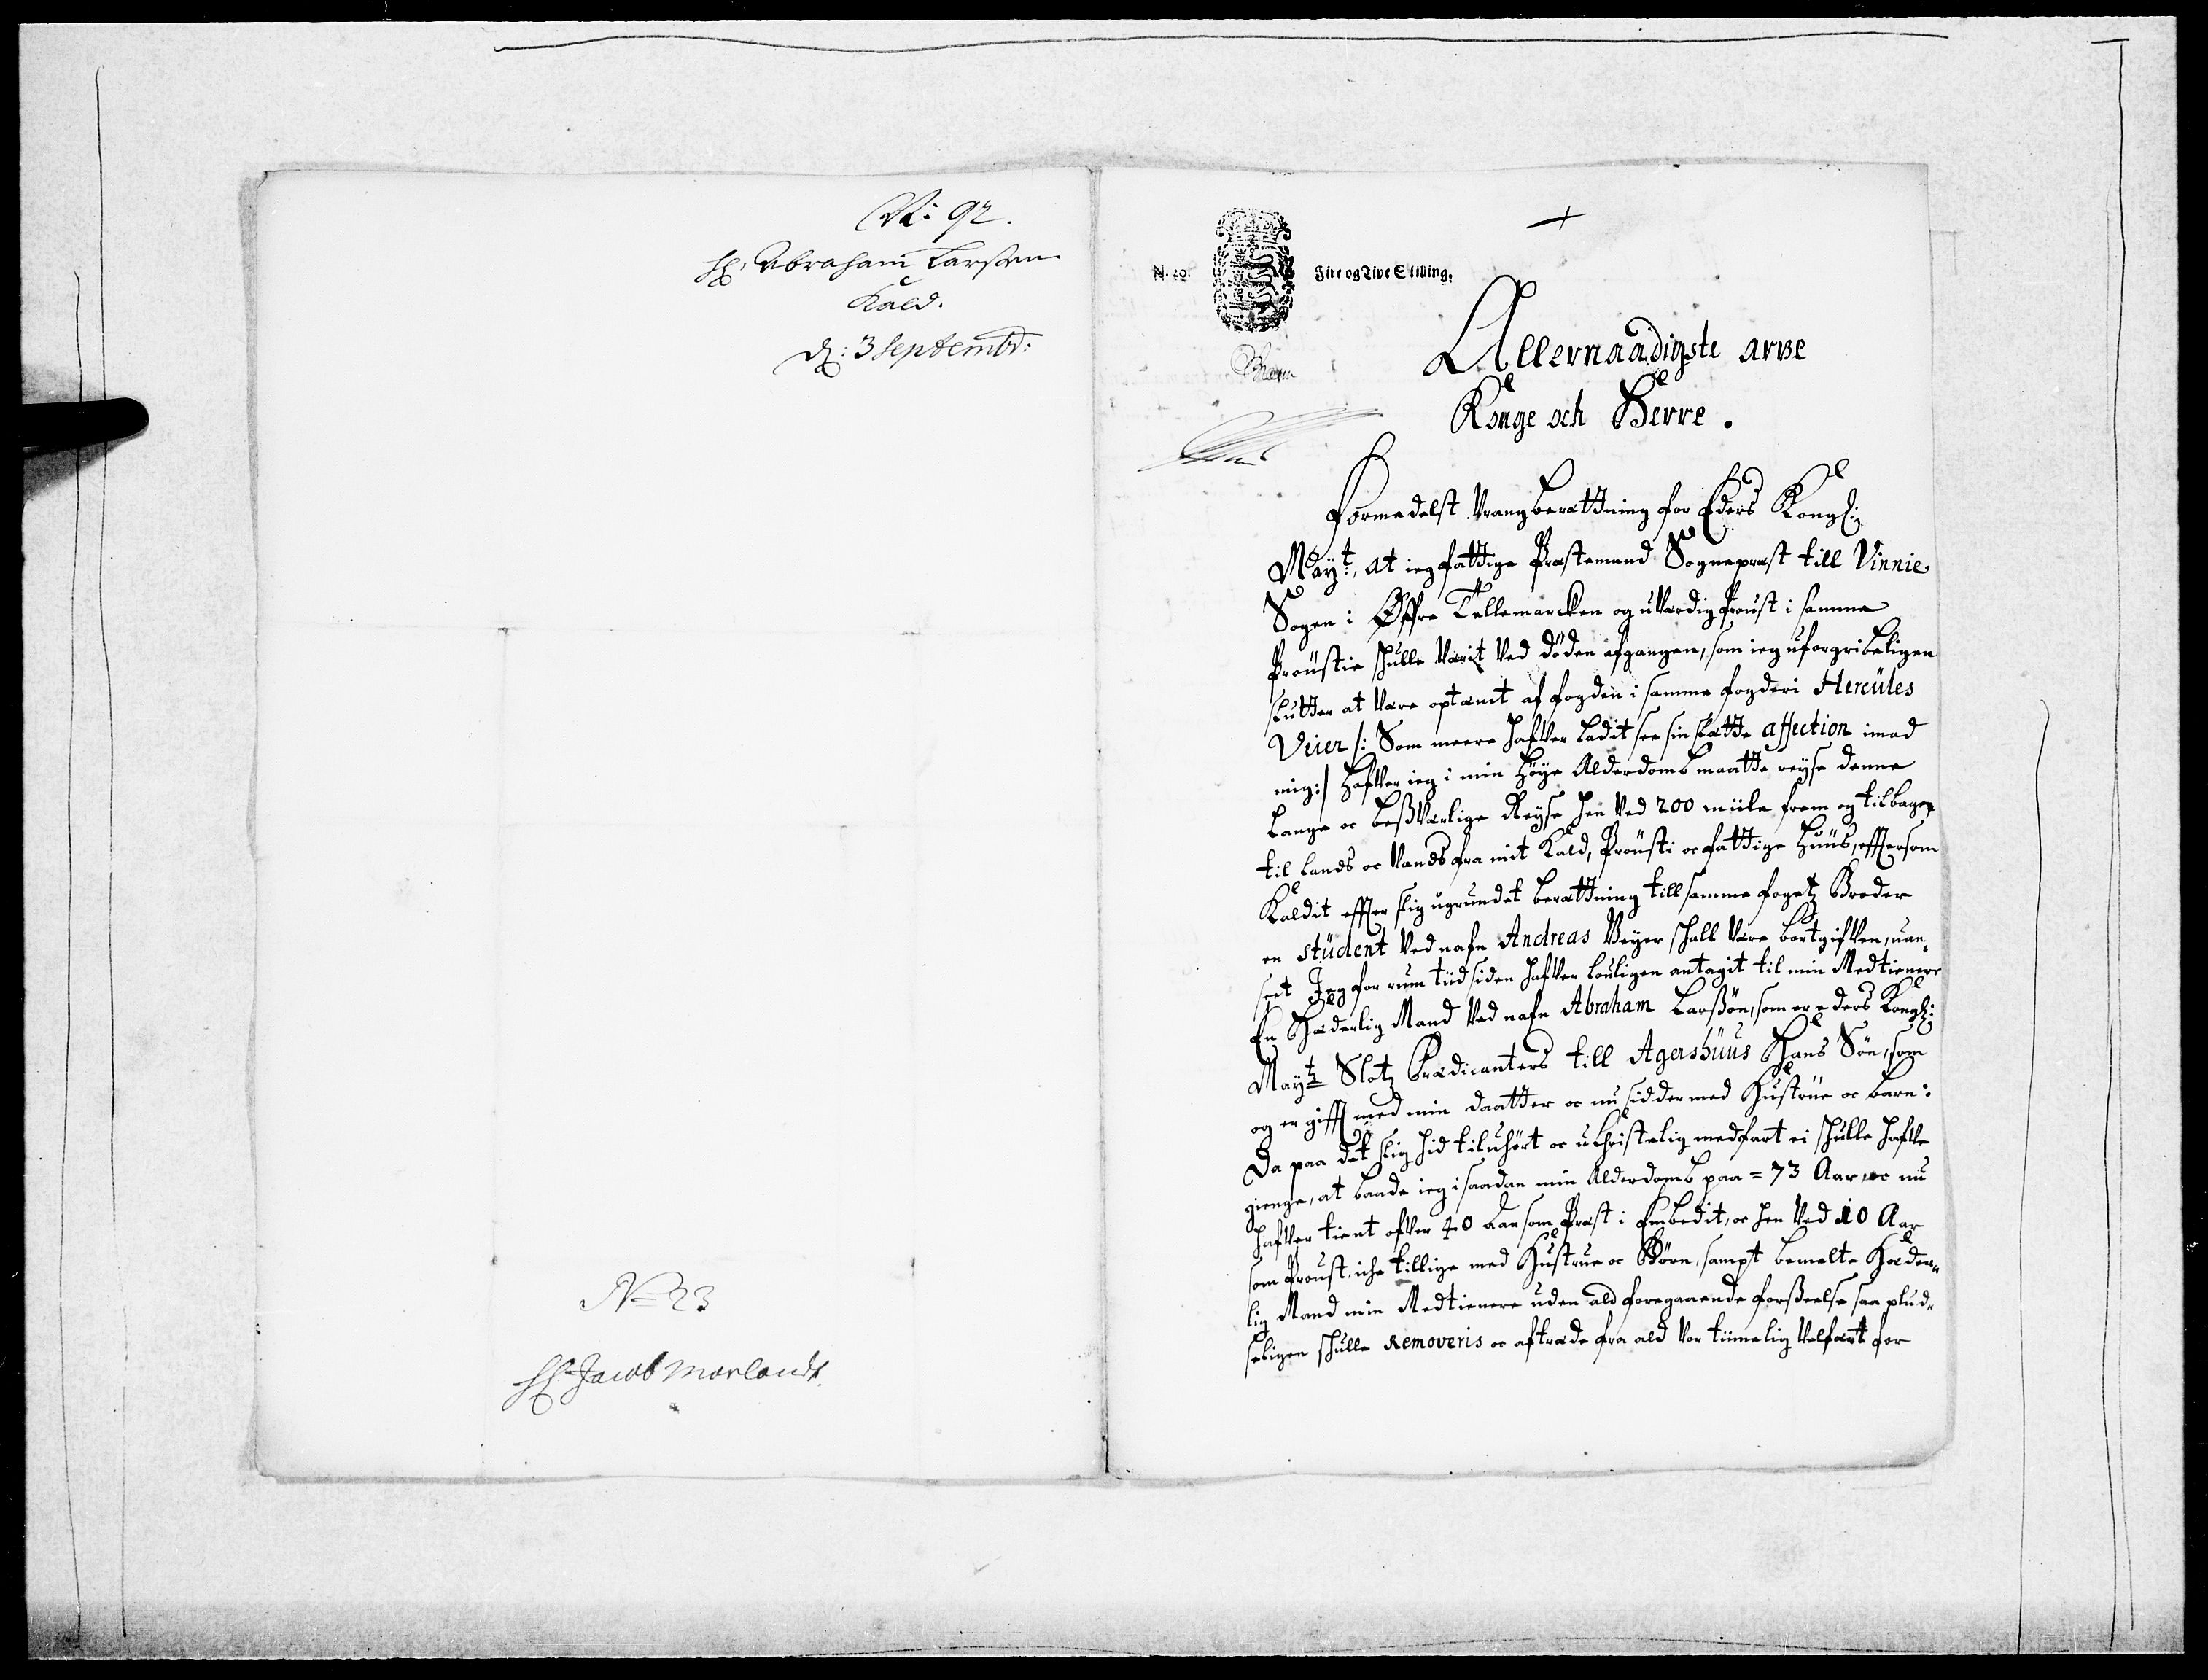 N: 92.
Hr: Abraham Larssen
Kald.
d: 3 Septembr:
No 23
Hr Jacob Morlandt
N. 20. Fire og Tive Skilling.
Allernaadigste arve
Konge och Herre.
Formedelst Vrang berættning for Eders Kongl:
Mayt:, at ieg fattige Præstemand Sognepræst till Vinnie
Sogen i Øffre Tellemarcken og uværdig Proust i samme
Proustie schulle værit ved døden afgangen, som ieg uforgribeligen
slutter at være optænt af fogden i samme fogderi Hercules
Veier /: Som meere hafver ladit see sin slætte affection imod
mig :/ hafver ieg i min høye Alderdomb maatte reyse denne
lange oc besværlige Reyse hen ved 200 miile frem og tilbage
til lands oc vands fra mit Kald, Prousti oc fattige Huus, effersom
Kaldit effter slig ugrundet berættning till samme fogetz Broder
en student ved nafn Andreas Veyer schall være bortgifven, uan-
seet Jeg for rum tiid siden hafver louligen antagit til min Medtienere
En Hæderlig Mand ved nafn Abraham Larssøn, som er eders Kongl:
Maytz Slotz Prædicanters till Agershuus Hans Søn, som
og er gifft med min daatter oc nu sidder med Hustrue oc barn:
Da paa det slig hid til uhørt oc uchristelig medfart ei schulle hafve
gienge, at baade ieg i saadan min Alderdomb paa = 73 Aar, oc nu
hafver tient ofver 40 aar som Præst i Embedit, oc hen ved 10 Aar
som Proust, iche tillige med Hustrue oc Børn, sampt bemelte Hæder-
lig Mand min Medtienere uden ald foregaaende forseelse saa plud-
seligen schulle removeris oc aftræde fra ald vor tiimelig velfært for